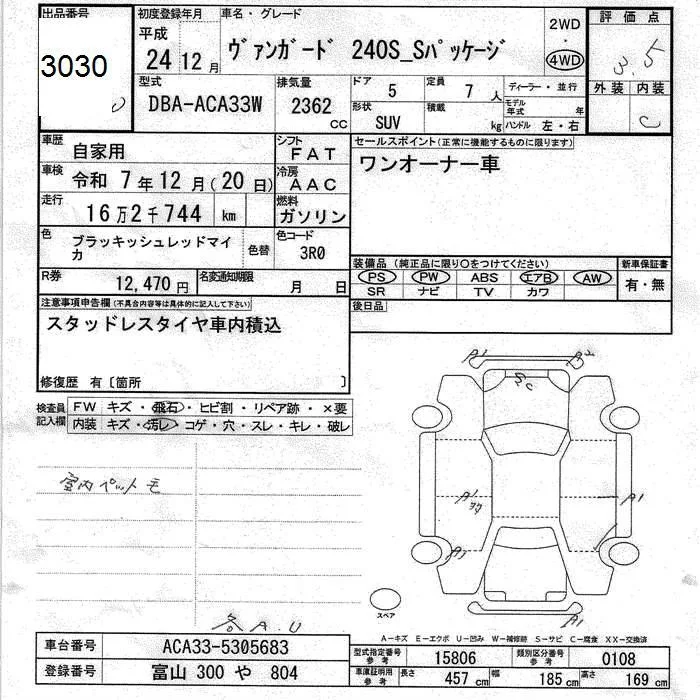 出品番号
3030
初度登録年月
平成
24年12月
車名・グレード
ヴァンガード 240S_Sパッケージ
2WD
・
4WD
評価点
3.5
外装 内装
C
型式
DBA-ACA33W
排気量
2362
CC
ドア
5
定員
7人
形状
SUV
積載
kg
ディーラー・並行
モデル年式 年
ハンドル 左・右
車歴
自家用
シフト
FAT
車検
令和 7年12月(20日)
冷房
AAC
走行
16万2千744 km
燃料
ガソリン
色
ブラッキッシュレッドマイカ
色替
色コード
3R0
R券
12,470円
名変通知期限
月 日
セールスポイント(正常に機能するものに限ります)
ワンオーナー車
装備品(純正品に限り○をつけてください)
PS PW ABS エアB AW
SR ナビ TV カワ
新車保証書
有・無
後日品
注意事項申告欄(不具合内容等は具体的に記入して下さい)
スタッドレスタイヤ車内積込
修復歴 有〔箇所 〕
検査員記入欄
FW キズ・飛石・ヒビ割・リペア跡・×要
内装 キズ・汚レ・コゲ・穴・スレ・キレ・破レ
室内ペット毛
各A.U
A1
A1
A1
A1
スペア
A-キズ E-エクボ U-凹み W-補修跡 S-サビ C-腐食 XX-交換済
車台番号
ACA33-5305683
登録番号
富山 300 や 804
型式指定番号
参考
15806
類別区分番号
参考
0108
車庫証明用
参考
長さ 457cm
幅 185cm
高さ 169cm